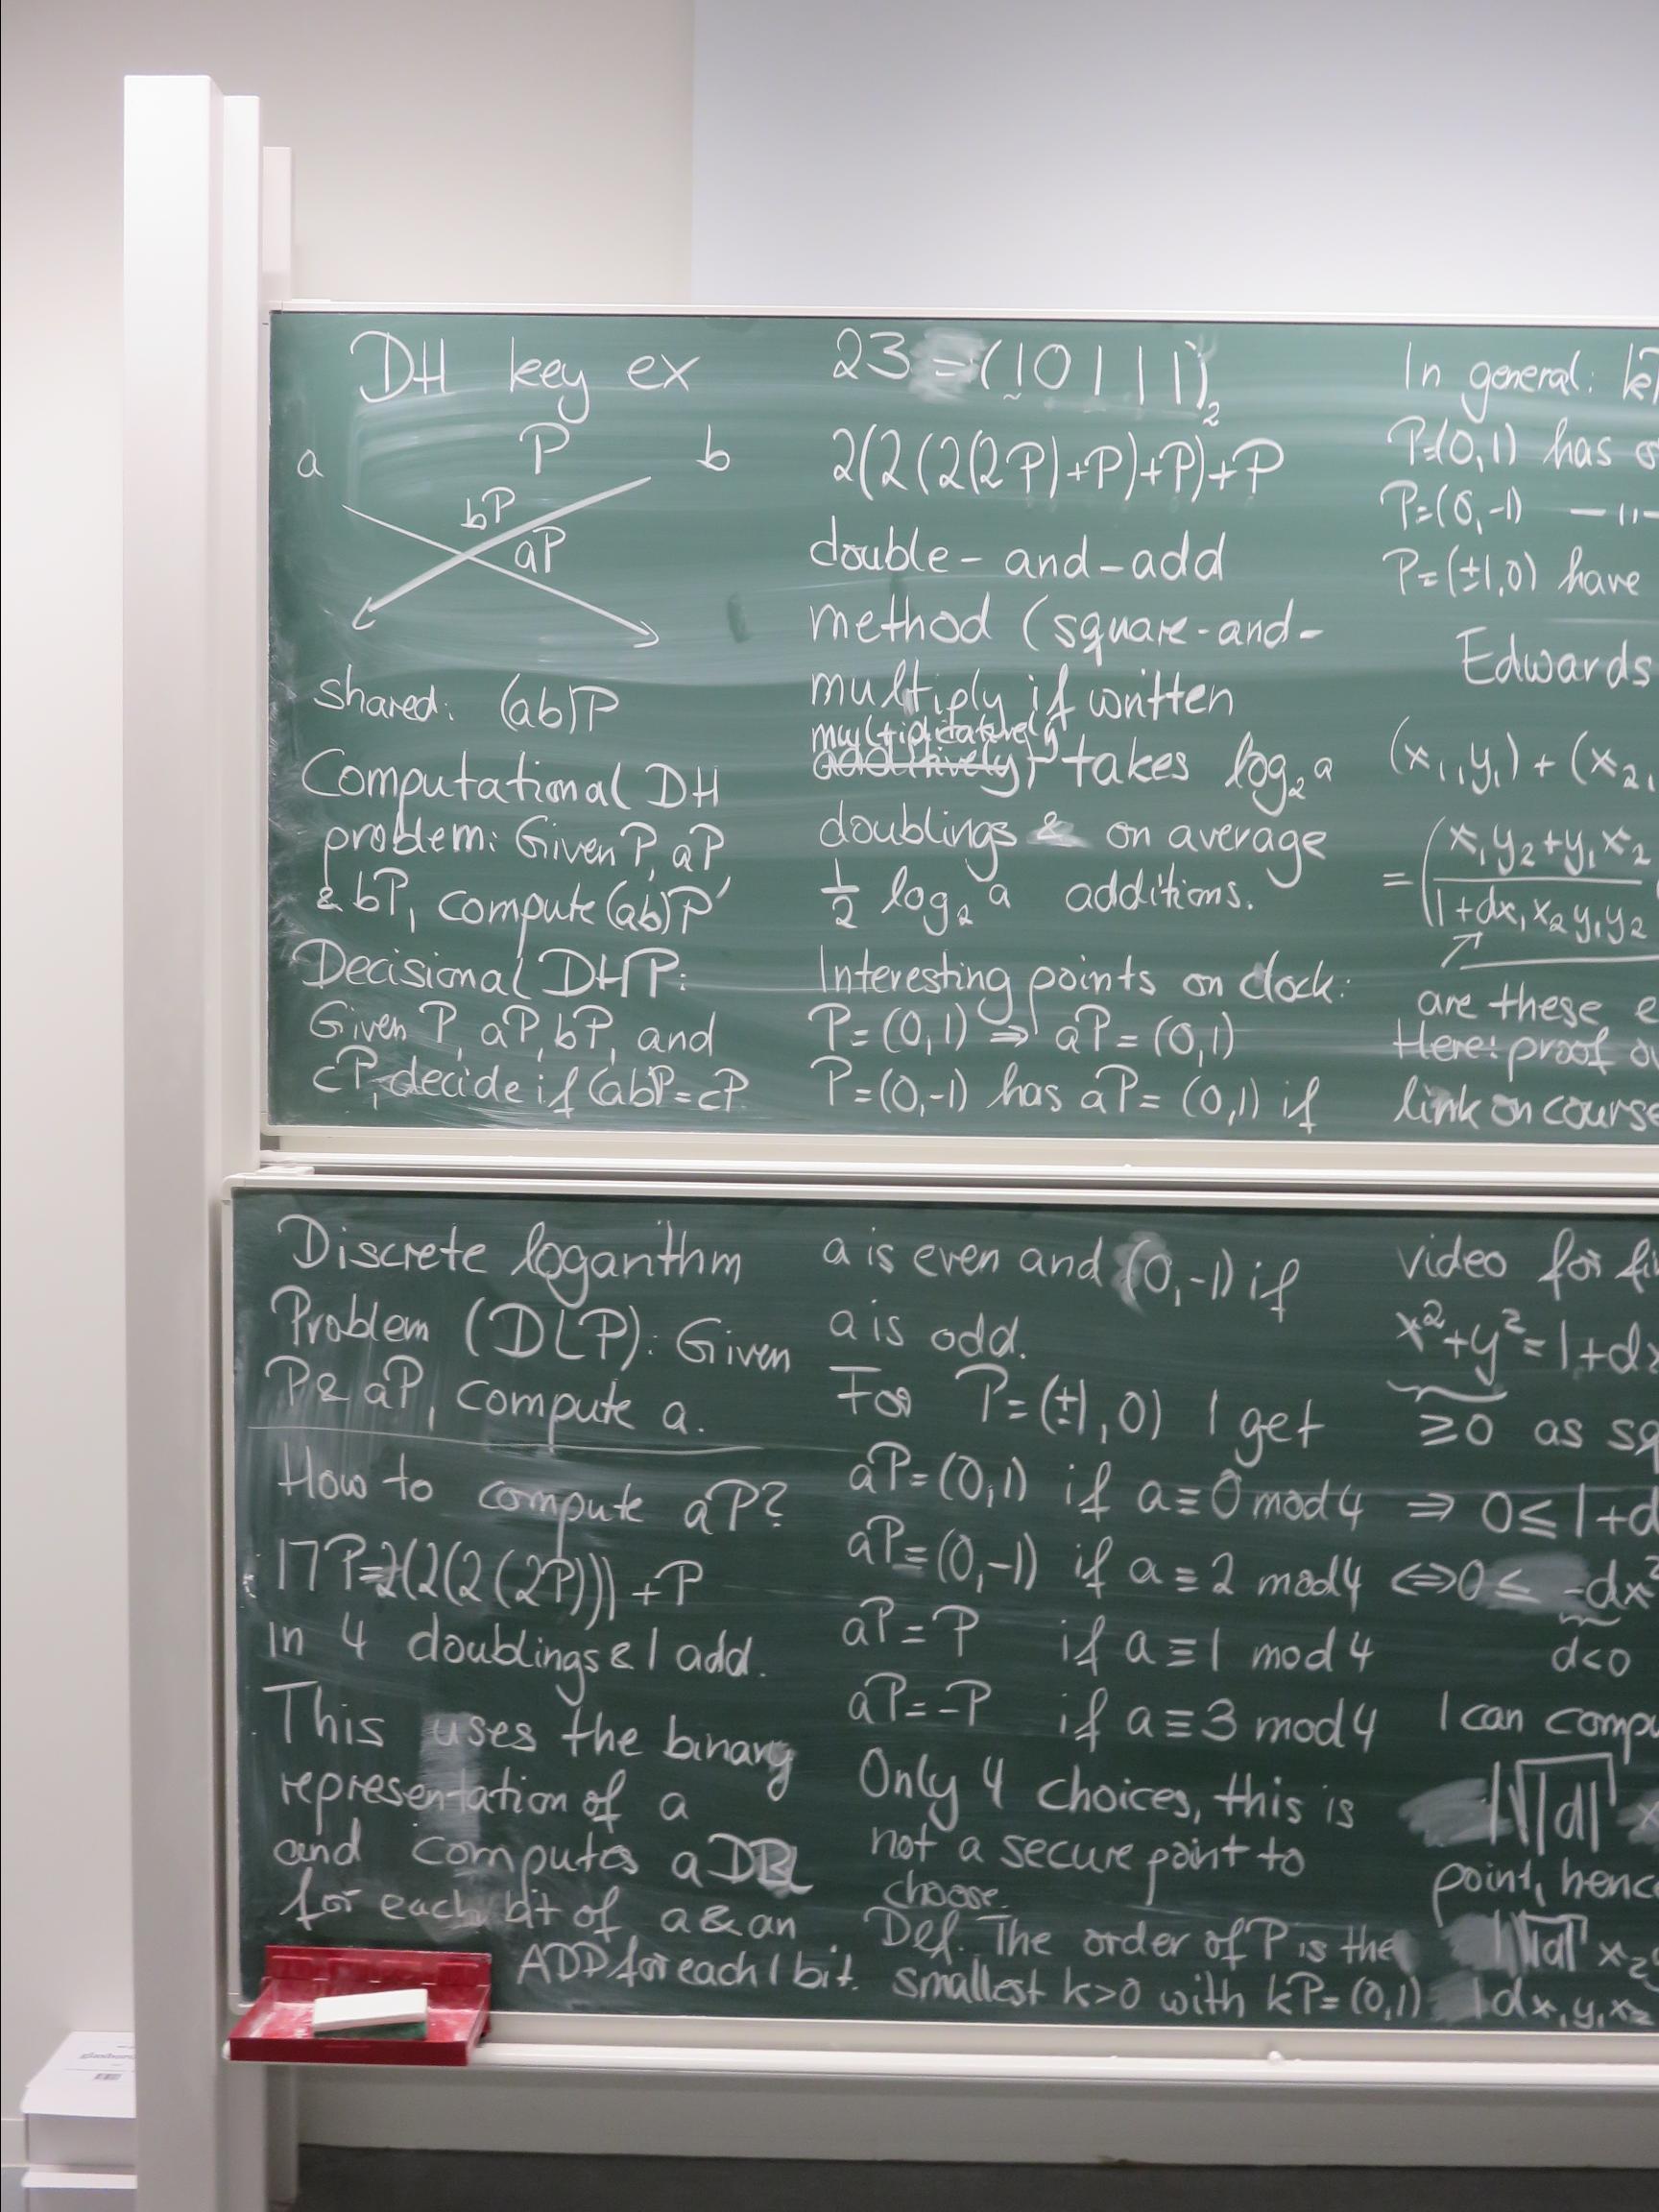 DH key ex
a P b
bP
aP
shared: (ab)P
Computational DH
problem: Given P, aP
& bP, compute (ab)P
Decisional DHP:
Given P, aP, bP, and
cP, decide if (ab)P=cP
Discrete logarithm
Problem (DLP): Given
P & aP, compute a.
How to compute aP?
17P=2(2(2(2P))) + P
in 4 doublings & 1 add.
This uses the binary
representation of a
and computes a DBL
for each bit of a & an
ADD for each 1 bit.
23 = (10111)₂
2(2(2(2P)+P)+P)+P
double-and-add
method (square-and-
multiply if written
multiplicatively
additively) takes log₂ a
doublings & on average
½ log₂ a additions.
Interesting points on clock:
P=(0,1) ⇒ aP=(0,1)
P=(0,-1) has aP=(0,1) if
a is even and (0,-1) if
a is odd.
For P=(±1,0) I get
aP=(0,1) if a≡0 mod 4
aP=(0,-1) if a≡2 mod 4
aP=P if a≡1 mod 4
aP=-P if a≡3 mod 4
Only 4 choices, this is
not a secure point to
choose.
Def. The order of P is the
smallest k>0 with kP=(0,1)
In general:
P=(0,1) has
P=(0,-1) —"—
P=(±1,0) have
Edwards
(x₁,y₁) + (x₂,
= ( x₁y₂+y₁x₂
1+dx₁x₂y₁y₂
are these
Here: proof
link on course
video for
x²+y²=1+dx
≥0 as
⇒ 0≤1+d
⇔0≤ -dx²
d<0
I can
√|d|
point, hence
√|d| x₂
dx₁y₁x₂